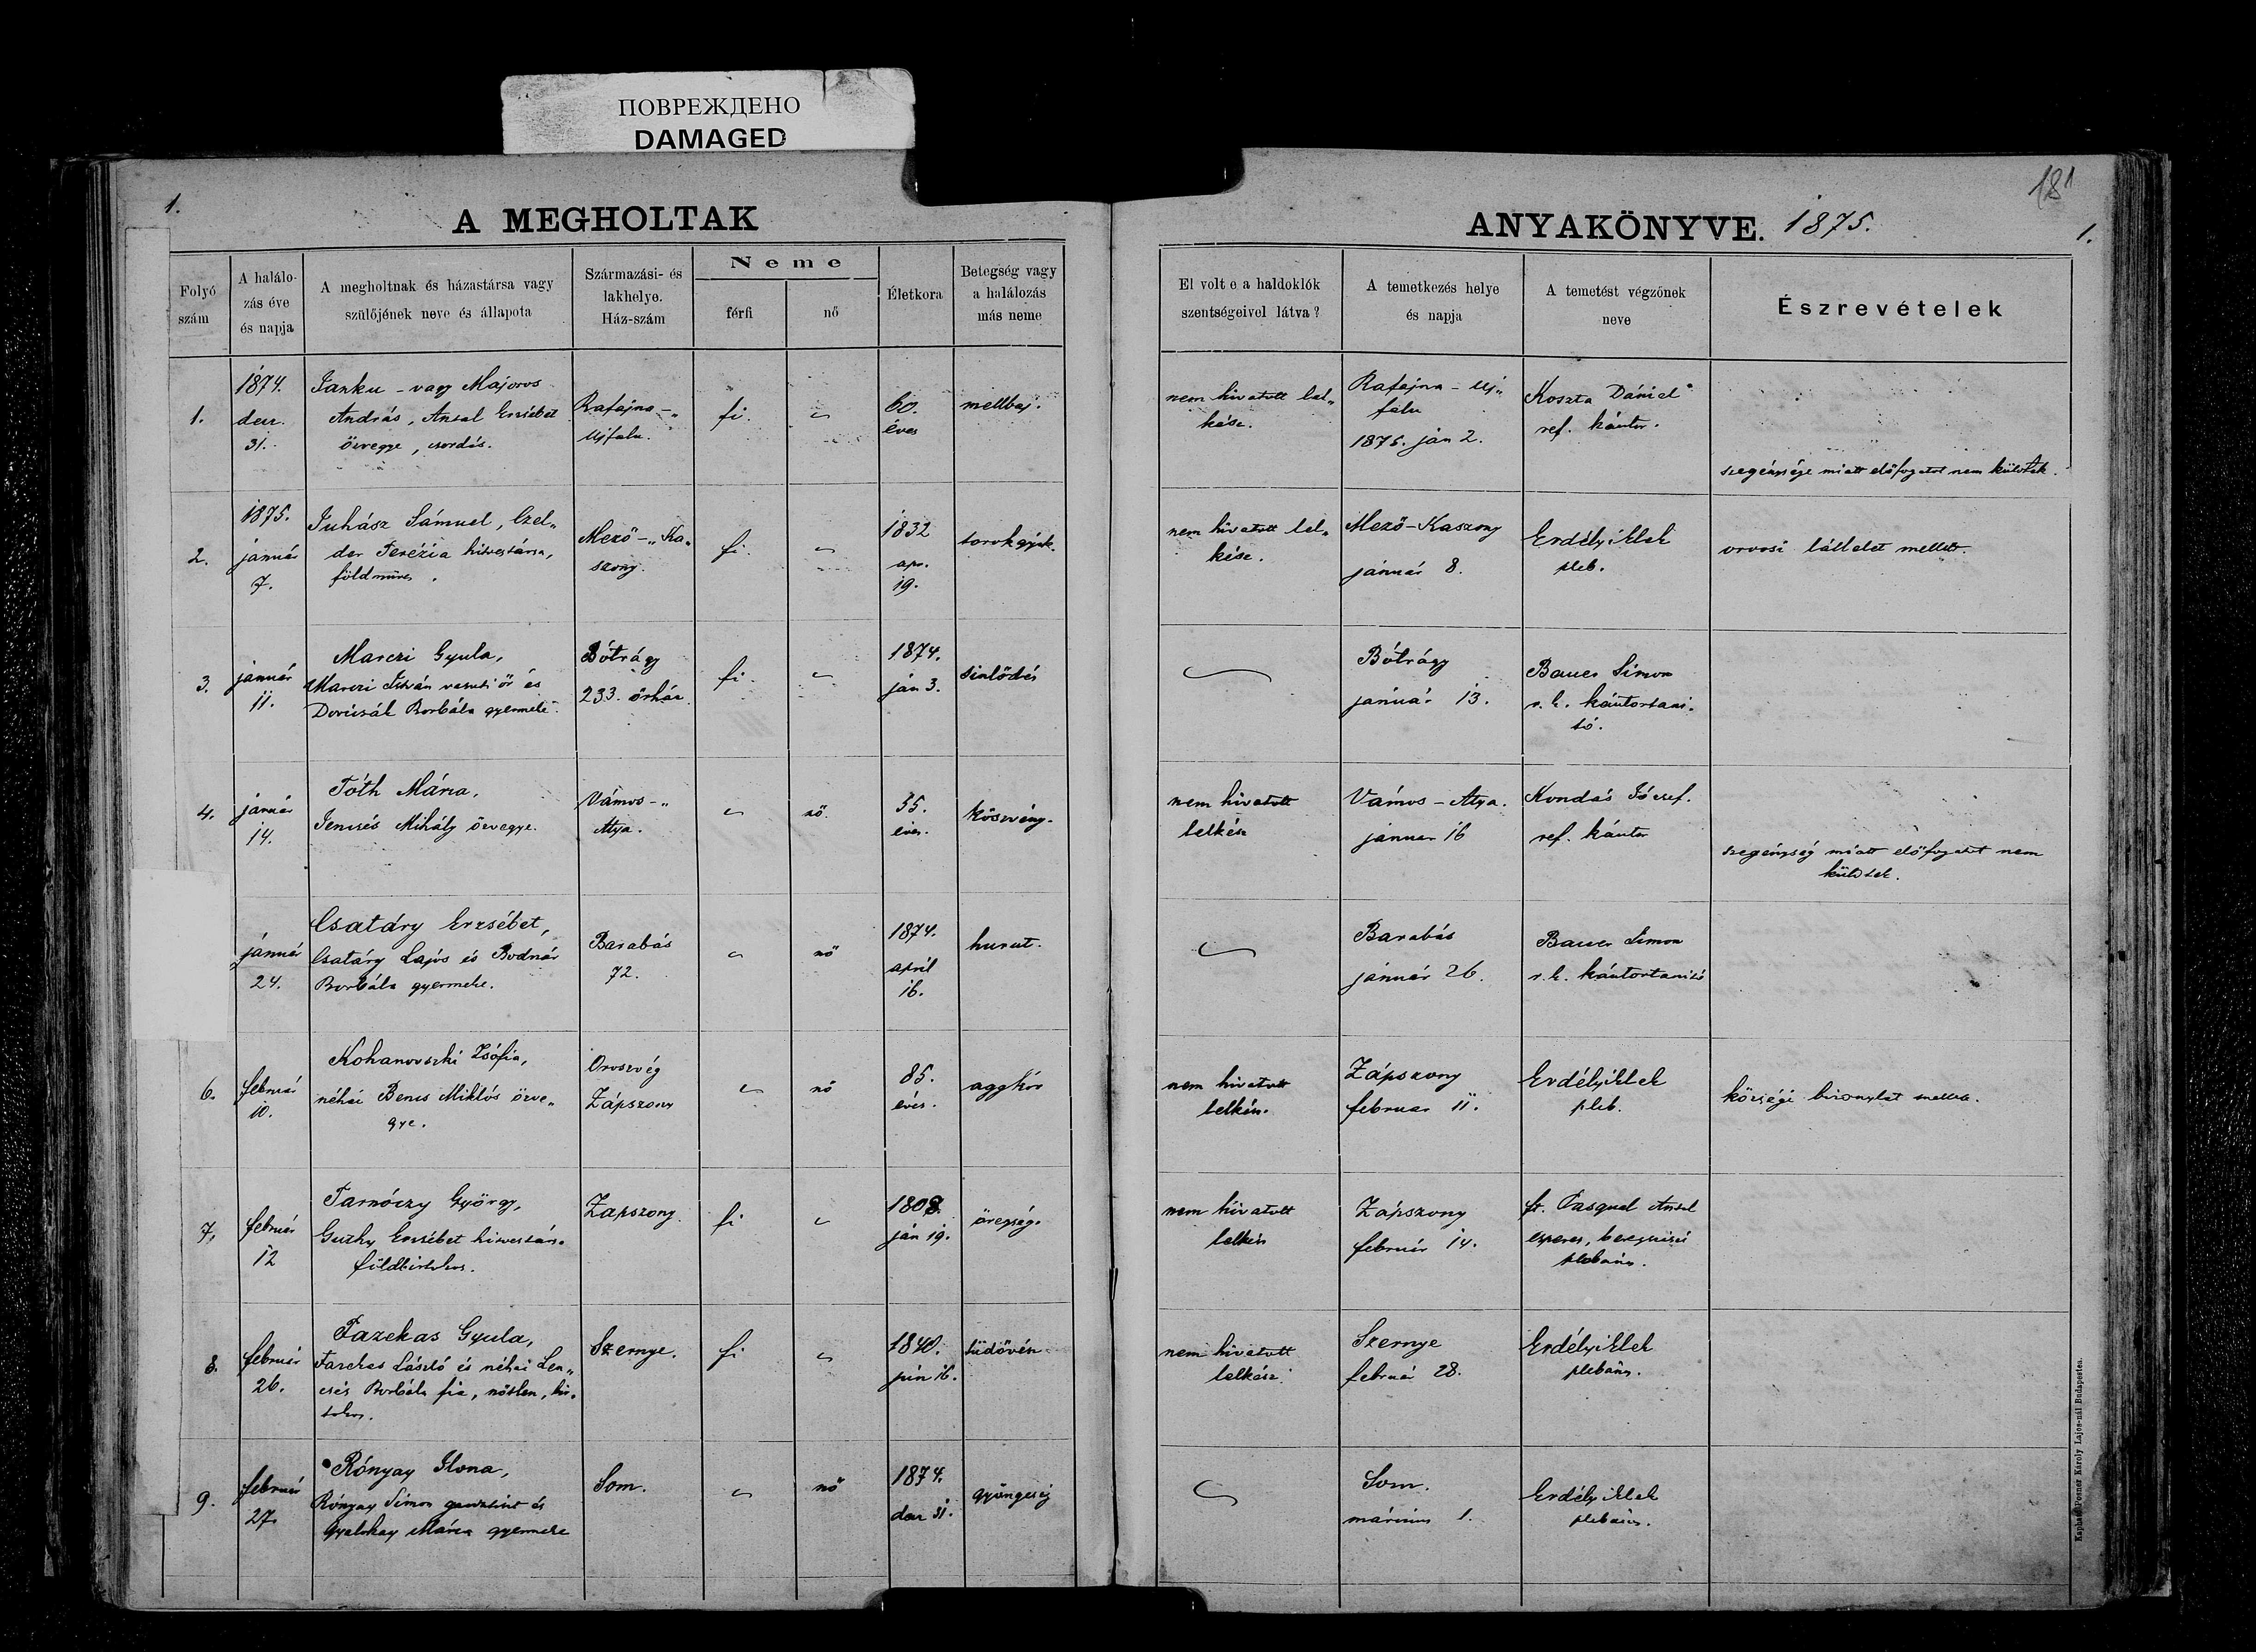 ПОВРЕЖДЕНО
DAMAGED
1.
A MEGHOLTAK
Folyó szám
A halálo-
zás éve
és napja
A megholtnak és házastársa vagy
szülőjének neve és állapota
Származási- és
lakhelye.
Ház-szám
Neme
férfi
nő
Életkora
Betegség vagy
a halálozás
más neme
1.
1874.
decz.
31.
Janku - vagy Majoros
András, Antal Erzsébet
özvegye, csordás.
Rafajna-„
Ujfalu.
fi.
60.
éves
mellbaj.
2.
1875.
január
7.
Juhász Sámuel, Czel„
der Terézia hitvestársa,
földmüves.
Mező-„Ka„
szony.
fi.
1832
apr.
19.
torokgyík.
3.
január
11.
Marczi Gyula,
Marczi István vasuti őr és
Borbála gyermeke.
Bótrágy
233. őrház
fi.
1874.
ján 3.
sinlődés
4.
január
14.
Tóth Mária,
Mihály özvegye.
Vámos-„
Atya.
nő.
55.
éves.
köszvény.
január
24.
Csatáry Erzsébet,
Csatáry Lajos és Bodnár
Borbála gyermeke.
Barabás
72.
nő
1874.
april
16.
hurut.
6.
február
10.
Kohanovszki Zsófia,
néhai Bencs Miklós özve„
gye.
Oroszvég
Zápszony
nő
85.
éves.
aggkór
7.
február
12
Tarnóczy György,
Guthy Erzsébet hitvestárs.
földbirtokos.
Zápszony.
fi.
1808
ján 19.
öregség.
8.
február
26.
Fazekas Gyula,
Fazekas László és néhai Len„
csés Borbála fia, nőtlen, bir„
tokos.
Szernye.
fi.
1840.
jún 16.
tüdővész
9.
február
27.
Rónyay Ilona,
Rónyay Simon gazdatiszt és
Gyalokay Mária gyermeke
Som.
nő
1874.
decz 31.
gyöngeség
181
ANYAKÖNYVE. 1875.
1.
El volt e a haldoklók
szentségeivel látva?
A temetkezés helye
és napja
A temetést végzőnek
neve
Észrevételek
nem hivatott lel„
kész.
Rafajna - Uj„
falu
1875. ján 2.
Koszta Dániel
ref. kántor.
szegénysége miatt előfogatot nem küldtek.
nem hivatott lel„
kész.
Mező-Kaszony
január 8.
Erdélyi Elek
pleb.
orvosi látlelet mellett.
Bótrágy
január 13.
Bauer Simon
r. k. kántortani„
tó.
nem hivatott
lelkész
Vámos-Atya.
január 16
Kondás József.
ref. kántor
szegénység miatt előfogatot nem
küldtek.
Barabás
január 26.
Bauer Simon
r. k. kántortanitó
nem hivatott
lelkész.
Zápszony
február 11.
Erdélyi Elek
pleb.
községi bizonylat mellett.
nem hivatott
lelkész
Zápszony
február 14.
ft. Pasquel Antal
esperes, beregszászi
plebános.
nem hivatott
lelkész.
Szernye
február 28.
Erdélyi Elek
plebános.
Som.
márczius 1.
Erdélyi Elek
plebános.
Kapható Posner Károly Lajos-nál Budapesten.